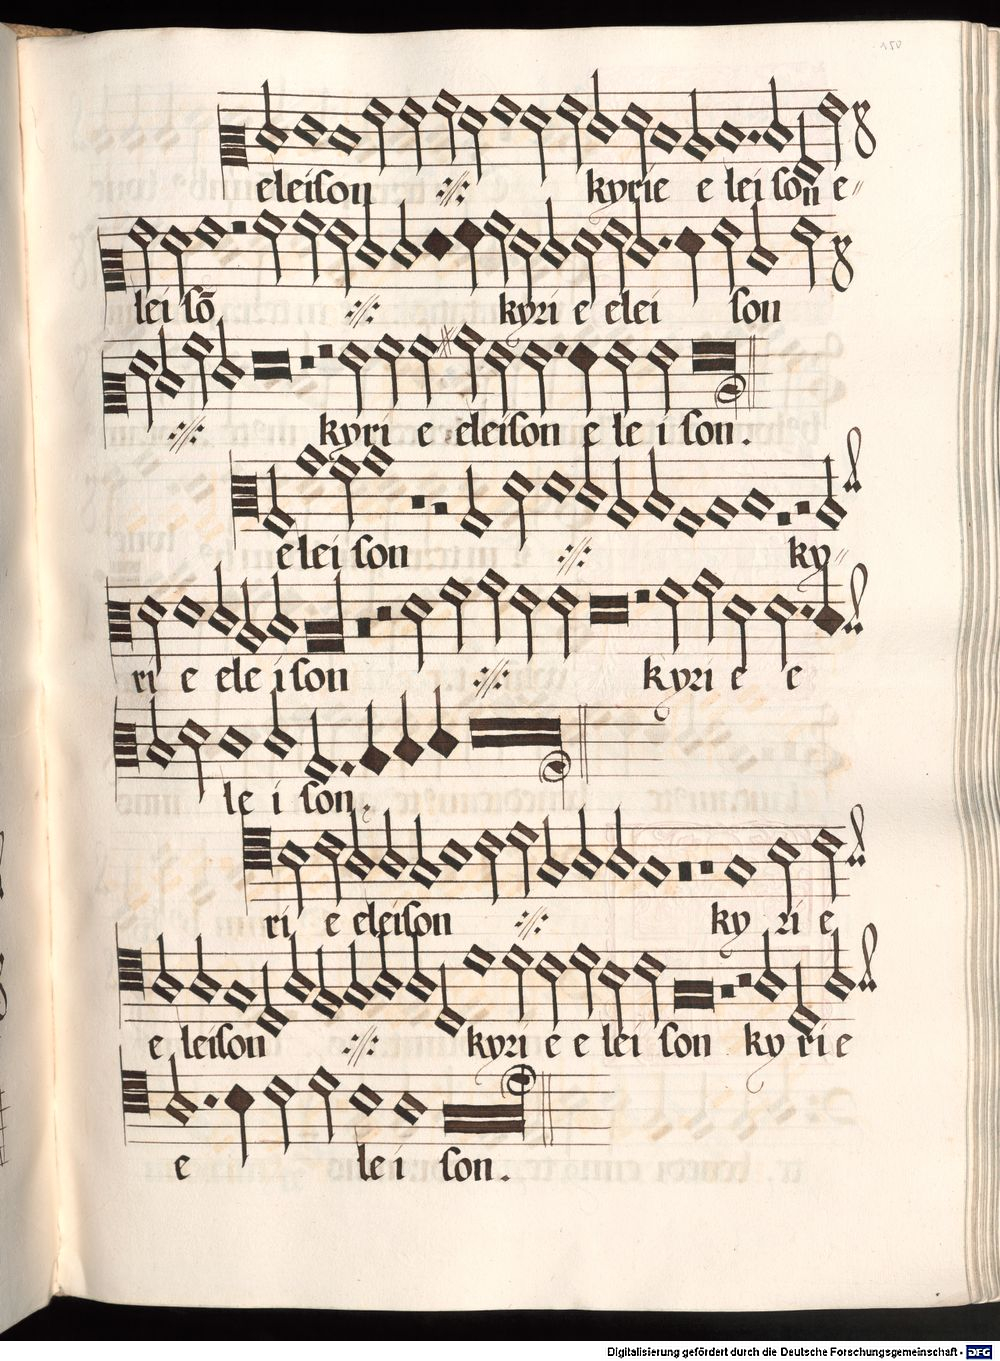 150
eleison ://: kyrie eleison e=
leisō ://: kyrie elei son
://: kyri e eleison e le i son.
elei son ://: ky=
ri e ele ison ://: kyri e e
le i son.
ri e eleison ://: ky ri e
e leison ://: kyri e e lei son ky rie
e le i son.
Digitalisierung gefördert durch die Deutsche Forschungsgemeinschaft - DFG